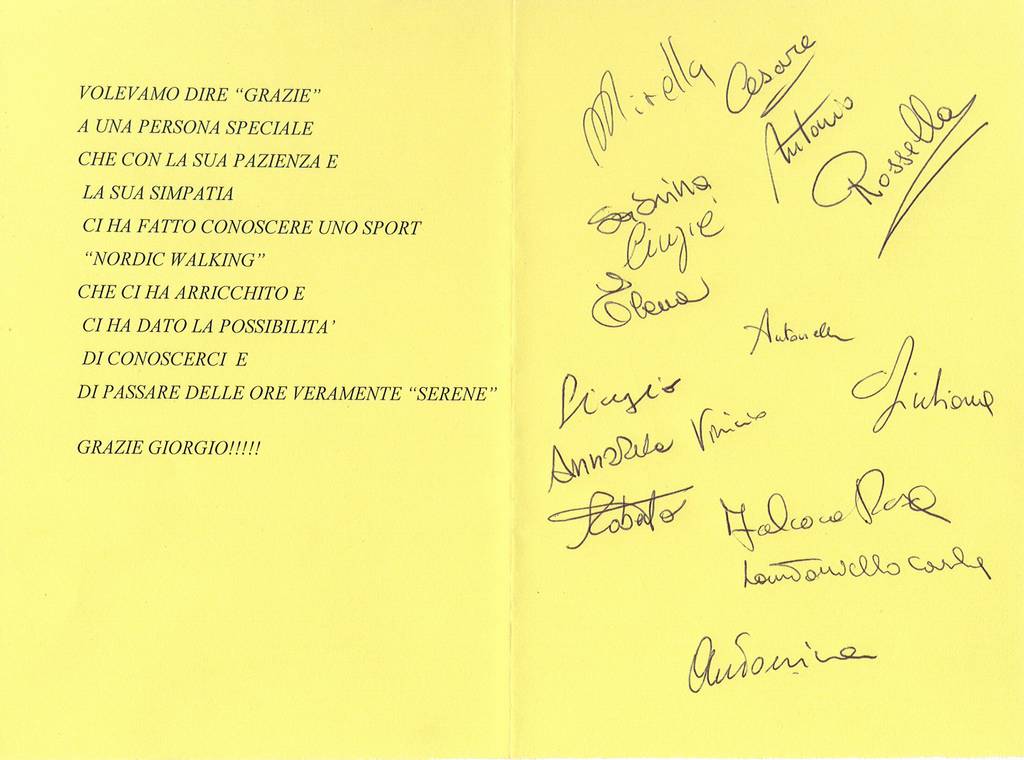 VOLEVAMO DIRE “GRAZIE”
A UNA PERSONA SPECIALE
CHE CON LA SUA PAZIENZA E
LA SUA SIMPATIA
CI HA FATTO CONOSCERE UNO SPORT
“NORDIC WALKING”
CHE CI HA ARRICCHITO E
CI HA DATO LA POSSIBILITA’
DI CONOSCERCI E
DI PASSARE DELLE ORE VERAMENTE “SERENE”
GRAZIE GIORGIO!!!!!
Mirella
Cesare
Antonio
Rossella
Sabrina
Elena
Antonella
Giuliana
Vinicio
Roberto
Rosa
Antonina